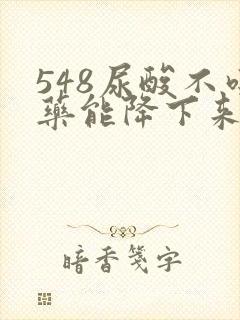 548尿酸不
藥能降下来
暗香箋字